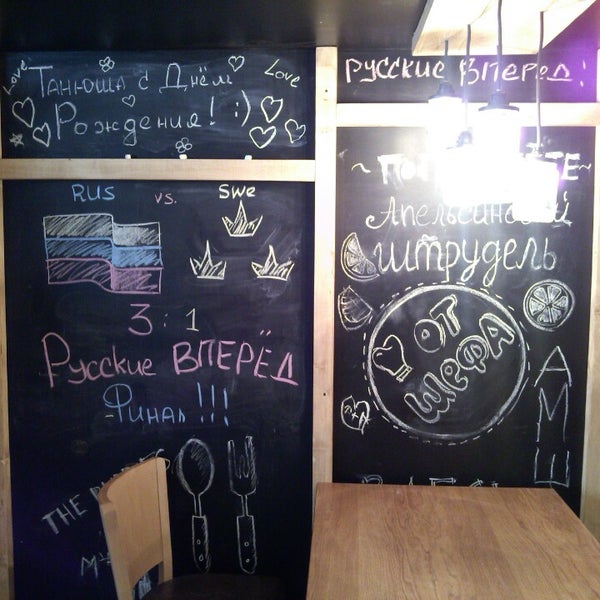 Love
Танюша с Днём
Love
Рождения! :)
RUS vs. Swe
3 : 1
Русские ВПЕРЁД
Финал!!!
THE
Русские вперед!
Апельсиновый
штрудель
ОТ
ШЕФА